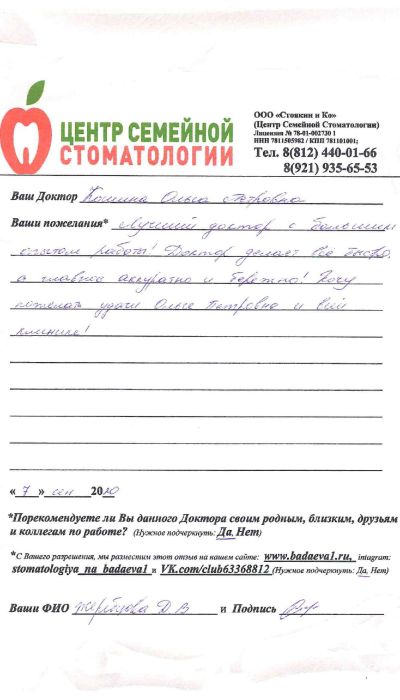 ЦЕНТР СЕМЕЙНОЙ
СТОМАТОЛОГИИ
ООО «Стоякин и Ко»
(Центр Семейной Стоматологии)
Лицензия № 78-01-002730 1
ИНН 7811505982 / КПП 781101001;
Тел. 8(812) 440-01-66
8(921) 935-65-53
Ваш Доктор Ольга Петровна
Ваши пожелания* Лучший доктор с большим
опытом работы! Доктор делает все быстро,
а главное аккуратно и бережно! Хочу
пожелать удачи Ольге Петровне и всей
клинике!
« 7 » сен 2020
*Порекомендуете ли Вы данного Доктора своим родным, близким, друзьям
и коллегам по работе? (Нужное подчеркнуть: Да, Нет)
*С Вашего разрешения, мы разместим этот отзыв на нашем сайте: www.badaeva1.ru, intagram:
stomatologiya_na_badaeva1 и VK.com/club63368812 (Нужное подчеркнуть: Да, Нет)
Ваши ФИО Д.В и Подпись